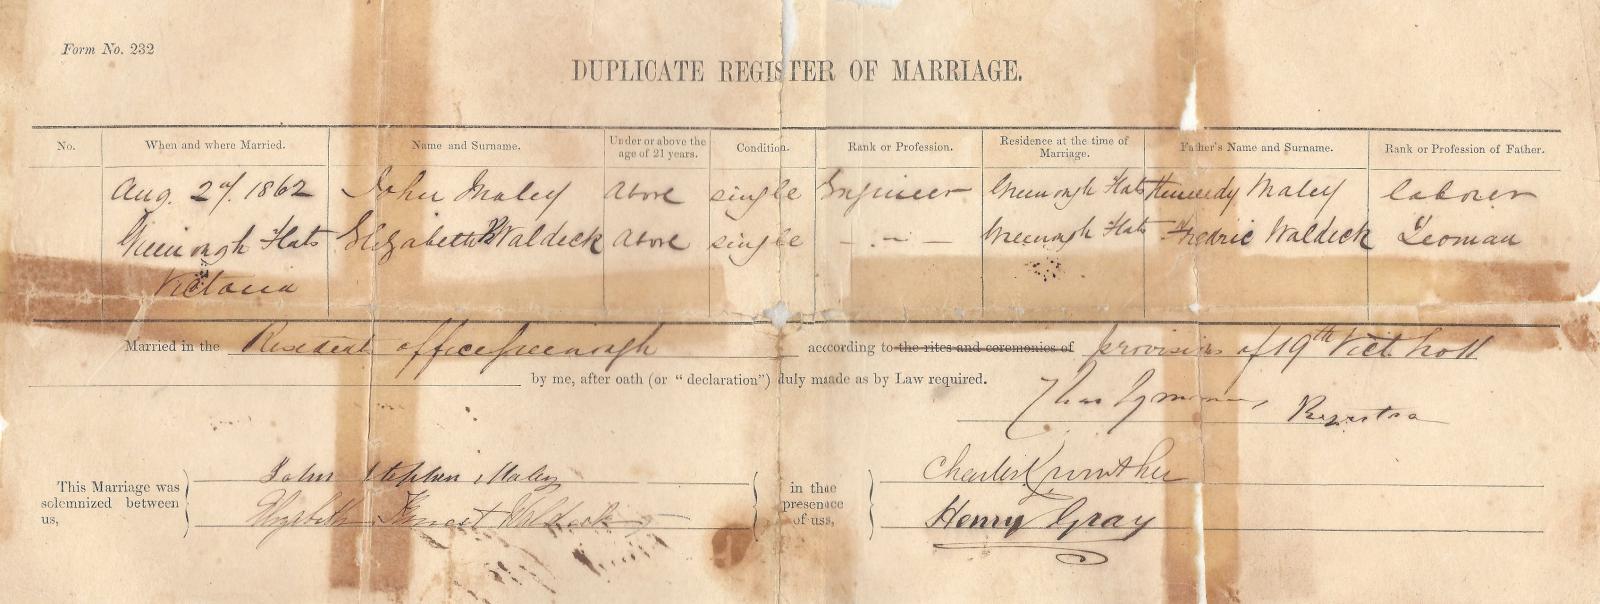 Form No. 232
DUPLICATE REGISTER OF MARRIAGE.
No. When and where Married. Name and Surname. Under or above the age of 21 years. Condition. Rank or Profession. Residence at the time of Marriage. Father's Name and Surname. Rank or Profession of Father.
Aug. 2nd. 1862 John Maley above single Engineer Greenough Flats Kennedy Maley laborer
Greenough Flats Elizabeth Waldeck above single - - - Greenough Flats Fredric Waldeck Yeoman
Victoria
Married in the Resident office Greenough according to the rites and ceremonies of provisions of 19th Vict.
by me, after oath (or "declaration") duly made as by Law required.
Registra
This Marriage was solemnized between us,
John Stephen Maley
Elizabeth Waldeck
in the presence of us,
Charles Crowther
Henry Gray